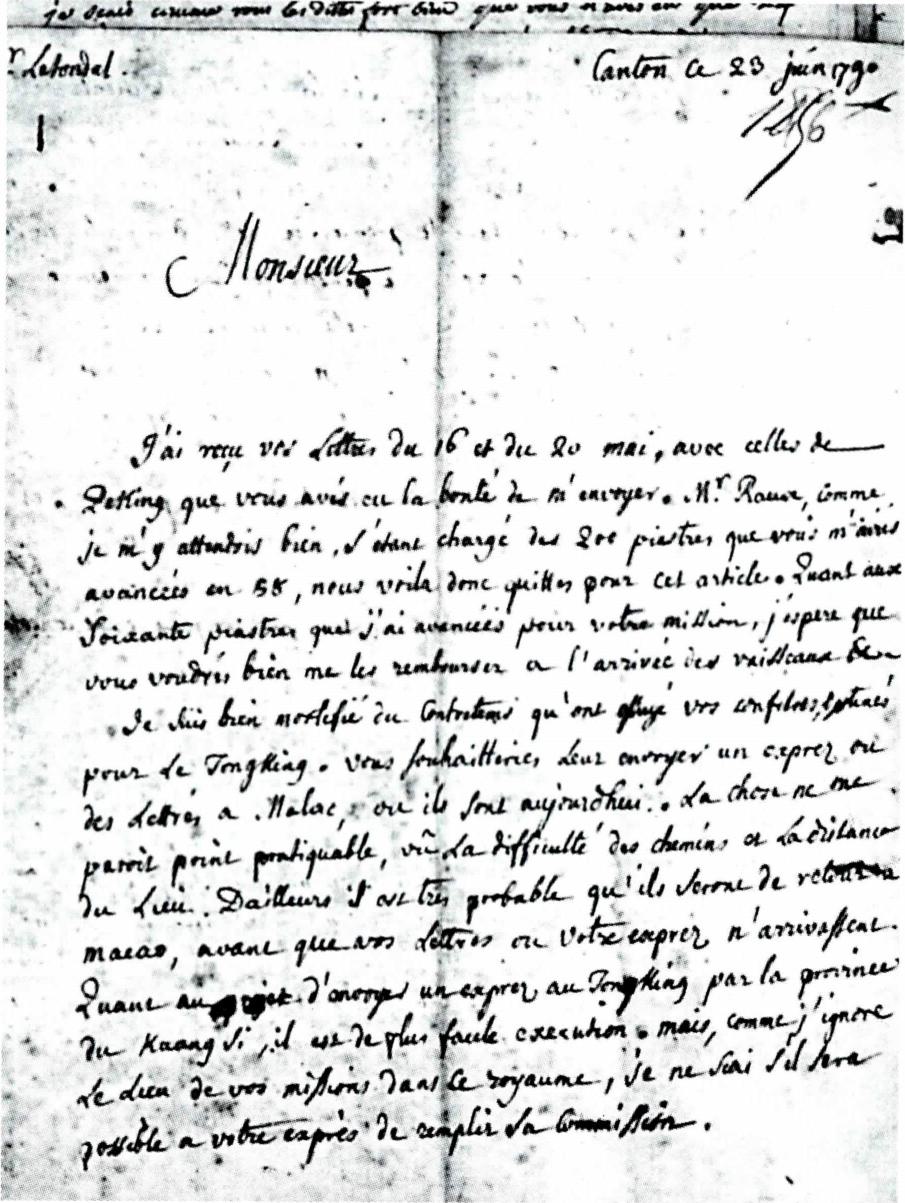 je scais comme vous les dittes fort bien que vous
r Letondal.
Canton ce 23 juin 1790
Monsieur
J'ai reçu vos Lettres du 16 et du 20 mai, avec celles de
Peking que vous avés eu la bonté de m'envoyer. Mr. Raux, comme
je m'y attendois bien, s'étant chargé des 200 piastres que vous m'aviés
avancées en 88, nous voila donc quittes pour cet article. Quant aux
Soixante piastres que j'ai avancées pour votre mission, j'espere que
vous voudrés bien me les rembourser a l'arrivée des vaisseaux
Je suis bien mortifié du Contretems qu'ont vos confreres
pour Le TongKing. vous souhaitteries Leur envoyer un exprez ou
des Lettres a Malac, ou ils sont aujourdhui. La chose ne me
paroit point pratiquable, vû La difficulté des chemins et La distance
du Lieu. Dailleurs il est très probable qu'ils seront de retour a
macao, avant que vos Lettres ou votre exprez n'arrivassent.
Quant au projet d'envoyer un exprez au TongKing par la province
du Kuang Si, il est de plus facile execution. mais, comme j'ignore
Le Lieu de vos missions dans ce royaume, je ne scai s'il sera
possible a votre exprès de remplir sa Commission.